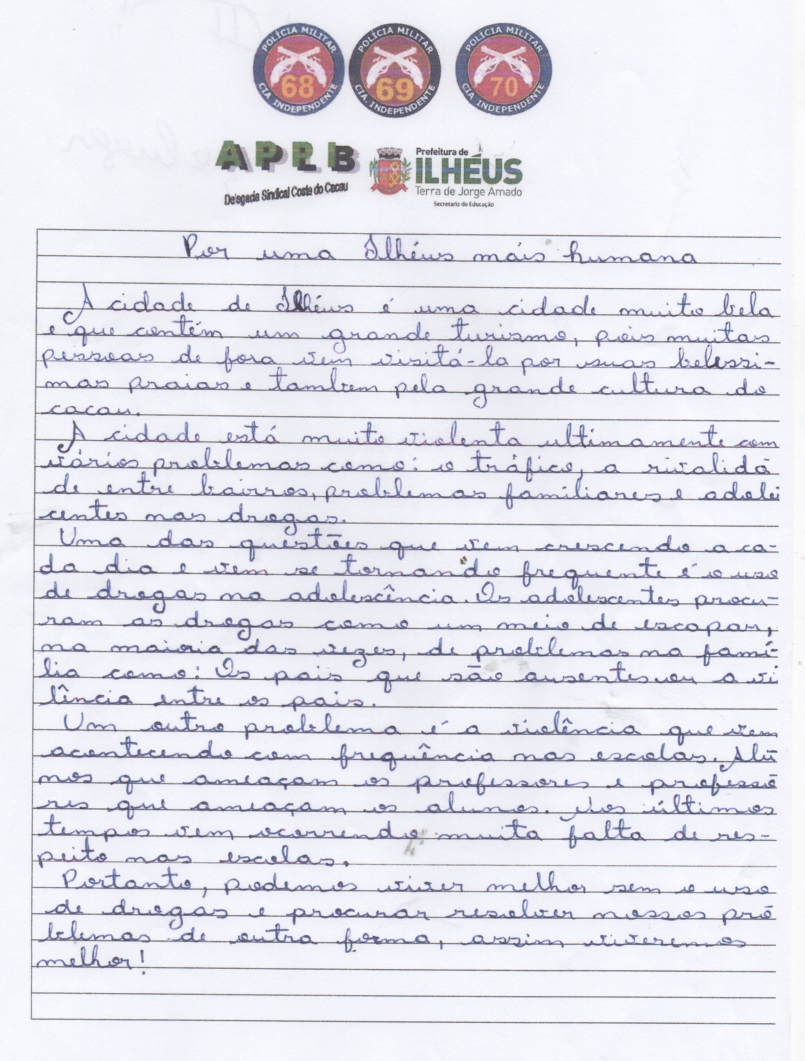 POLÍCIA MILITAR 68 CIA INDEPENDENTE
POLÍCIA MILITAR 69 CIA INDEPENDENTE
POLÍCIA MILITAR 70 CIA INDEPENDENTE
APLB
Delegacia Sindical Costa do Cacau
Prefeitura de
ILHÉUS
Terra de Jorge Amado
Secretaria de Educação
Por uma Ilhéus mais humana
A cidade de Ilhéus é uma cidade muito bela
e que contém um grande turismo, pois muitas
pessoas de fora vem visitá-la por suas belessi-
mas praias e tambem pela grande cultura do
cacau.
A cidade está muito violenta ultimamente com
vários problemas como: o tráfico, a rivalida
de entre bairros, problemas familiares e adolei
centes nas drogas.
Uma das questões que vem crescendo a ca-
da dia e vem se tornando frequente é o uso
de drogas na adolescência. Os adolescentes procu-
ram as drogas como um meio de escapar,
na maioria das vezes, de problemas na famí-
lia como: Os pais que são ausentes ou a vi
lência entre os pais.
Um outro problema é a violência que vem
acontecendo com frequência nas escolas. Alu
nos que ameaçam os professores e professo
res que ameaçam os alunos. Nos últimos
tempos vem ocorrendo muita falta de res-
peito nas escolas.
Portanto, podemos viver melhor sem o uso
de drogas e procurar resolver nossos pro
blemas de outra forma, assim viveremos
melhor!